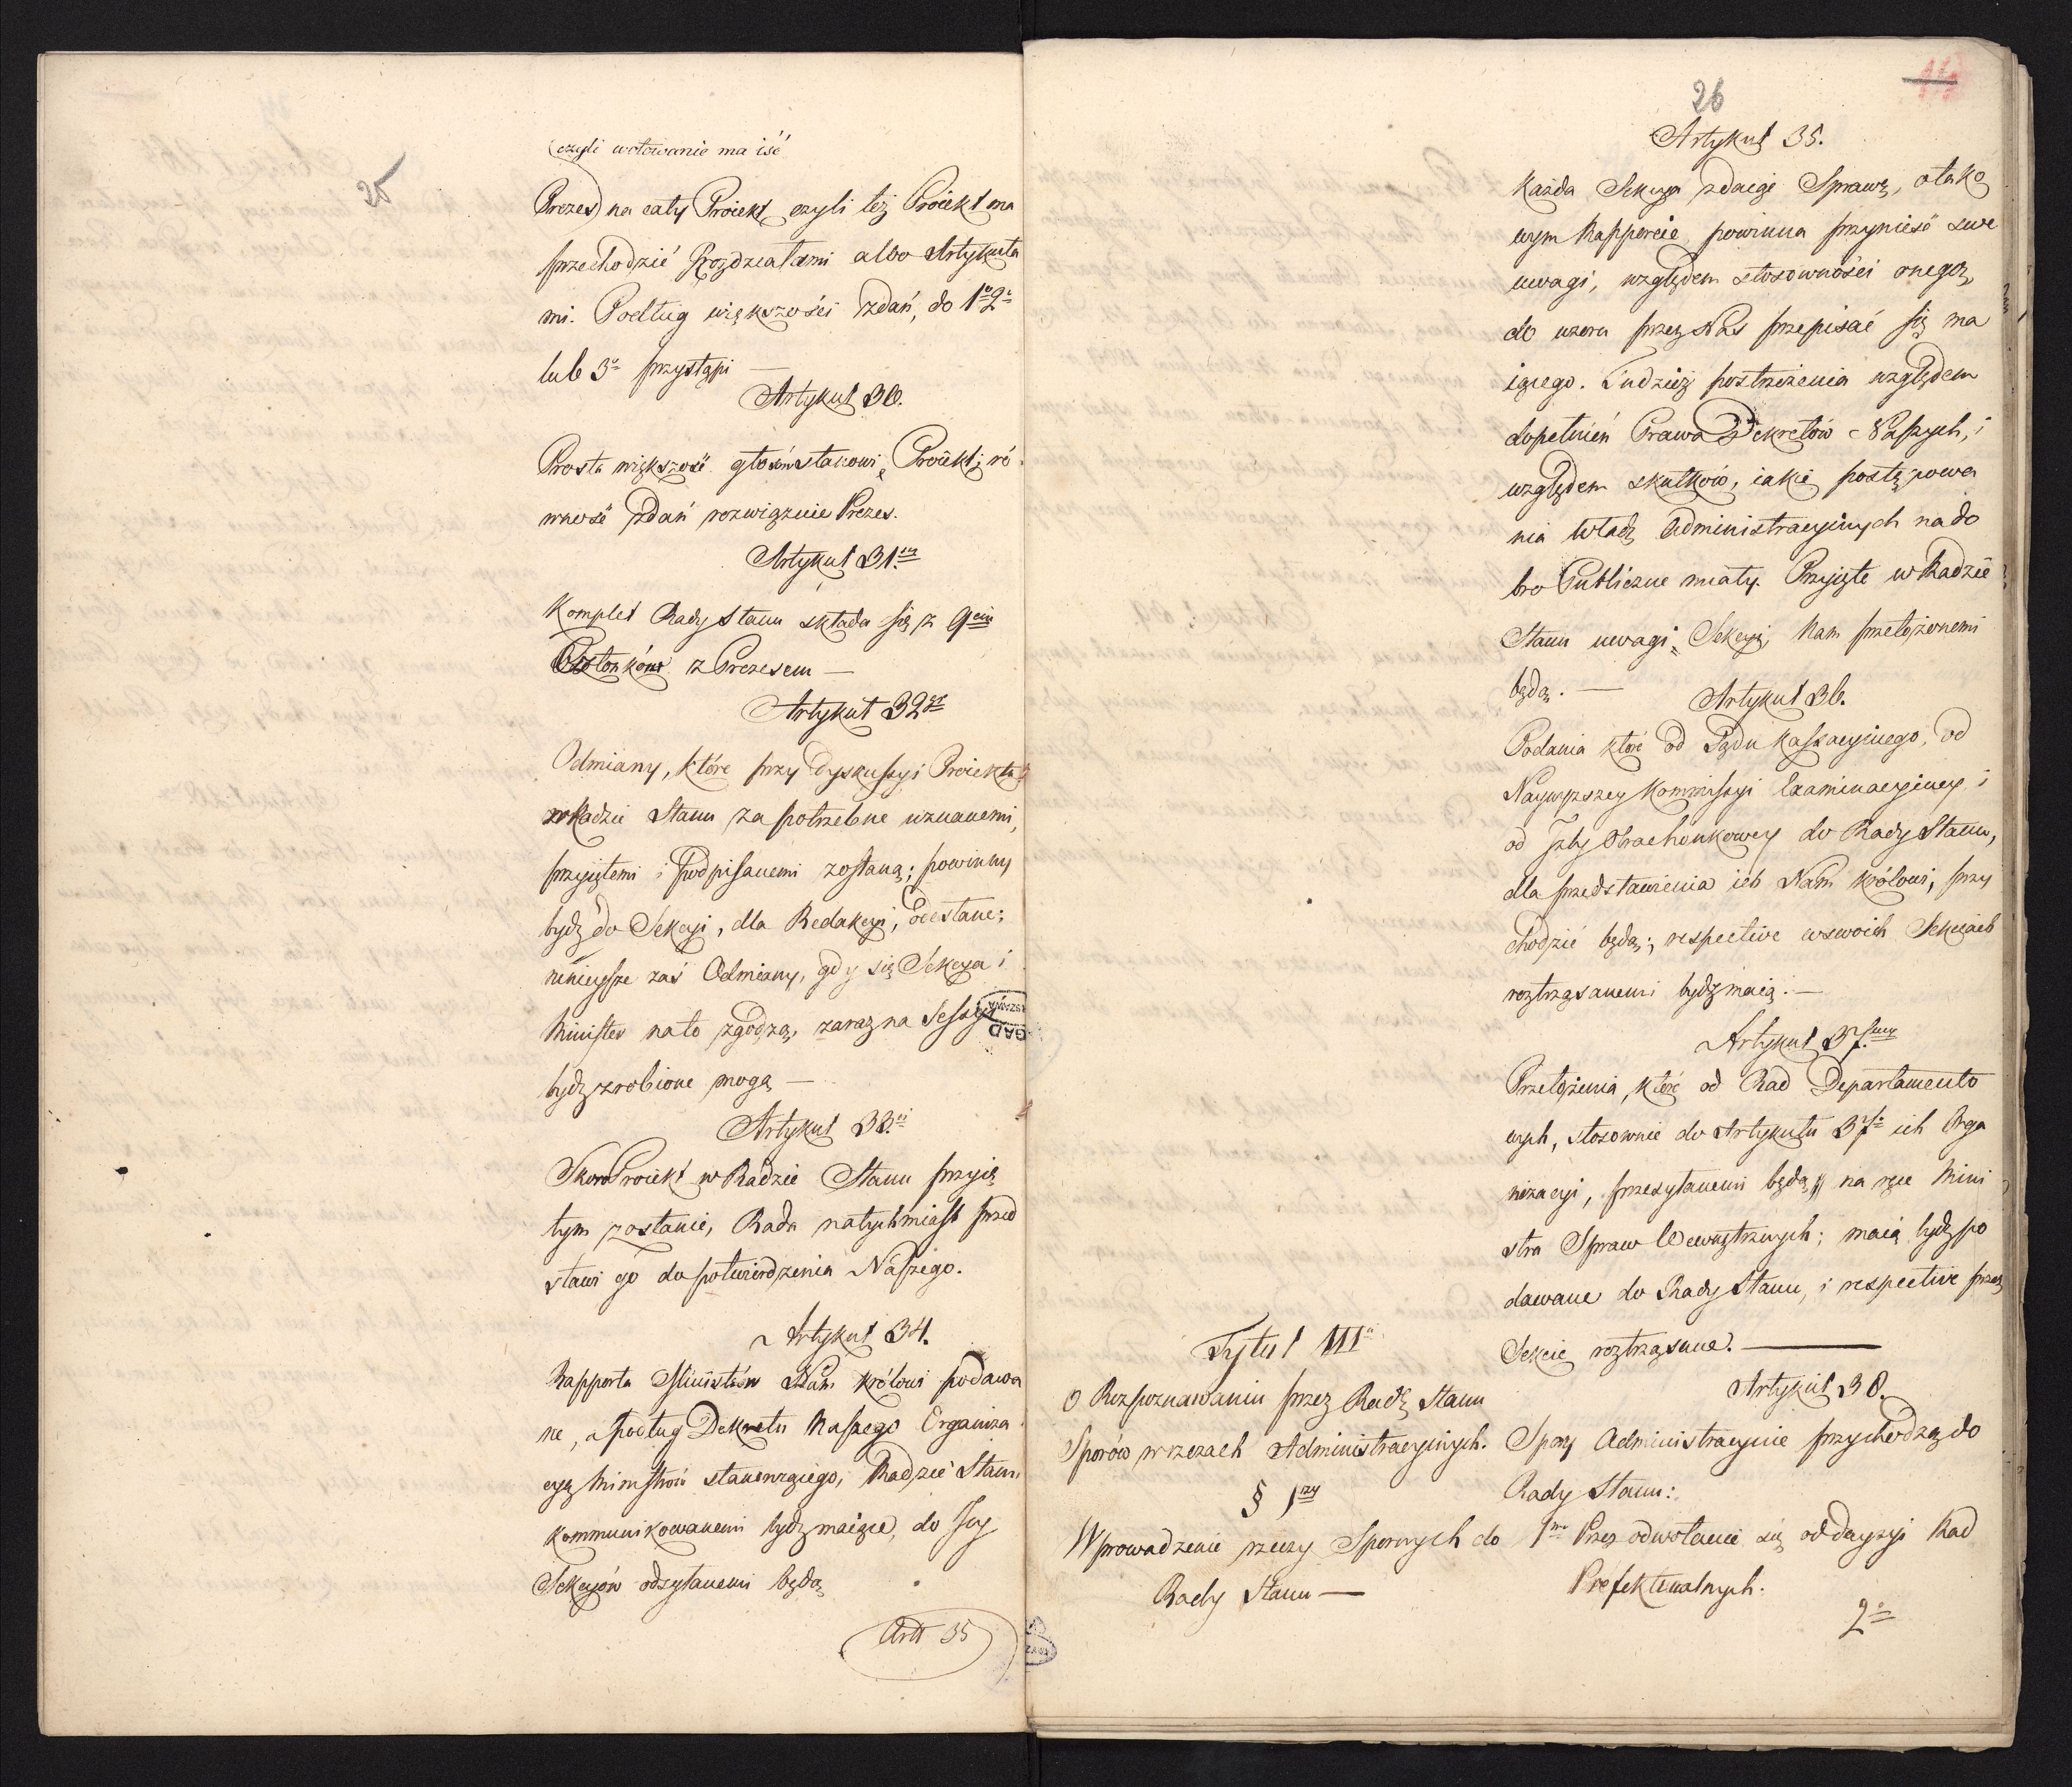 25
(czyli wotowanie ma iść
Prezes) na cały Proiekt, czyli też Proiekt ma
przechodzić Rozdziałami albo Artykuła
mi. Podług większości zdań, do 1º 2º
lub 3º przystąpi —
Artykuł 30.
Prosta większość głosów stanowi Proiekt; ró
wność zdań rozwiązuie Prezes.
Artykuł 31.
Komplet Rady Stanu składa się z 9ciu
Członków z Prezesem —
Artykuł 32
Odmiany, które przy Dyskussyi Proiektu
w Radzie Stanu za potrzebne uznanemi,
przyiętemi i podpisanemi zostaną; powinny
bydź do Sekcyi, dla Redakcyi, odesłane;
mnieysze zaś Odmiany, gdy się Sekcya i
Minister na to zgodzą, zaraz na Sessyi
bydź zrobione mogą —
Artykuł 33.
Skoro Proiekt w Radzie Stanu przyię
tym zostanie, Rada natychmiast przed
stawi go do potwierdzenia Naszego.
Artykuł 34.
Rapporta Ministrów Nam Królowi podawa
ne, a podług Dekretu Naszego Organiza
cyą Ministrów stanowiącego, Radzie Stanu
kommunikowanemi bydź maiące, do Jey
Sekcyów odsyłanemi będą
Art 35
26
Artykuł 35.
Każda Sekcya zdaiąc Sprawę, o tako
wym Rapporcie powinna przynieść swe
uwagi, względem stosowności onegoż,
do wzoru przez Nas przepisać się ma
iącego. Tudzież postrzeżenia względem
dopełnień Prawa i Dekretów Naszych, i
względem skutków, iakie postępowa
nia Władz Administracyinych na do
bro Publiczne miały. Przyięte w Radzie
Stanu uwagi Sekcyi, Nam przełożonemi
będą. —
Artykuł 36.
Podania które od Sądu Kassacyinego, od
Naywyższey Kommissyi Examinacyiney i
od Izby Obrachunkowey do Rady Stanu,
dla przedstawienia ich Nam Królowi, przy
chodzić będą; respective w swoich Sekcyach
roztrząsanemi bydź maią. —
Artykuł 37.
Przełożenia, które od Rad Departamento
wych, stosownie do Artykułu 37º ich Orga
nizacyi, przesyłanemi będą na ręce Mini
stra Spraw Wewnętrznych; maią bydź po
dawane do Rady Stanu, i respective przez
Sekcie roztrząsane. —
Tytuł III
O Rozpoznawaniu przez Radę Stanu
Sporów w rzeczach Administracyinych.
§ 1szy
Wprowadzenie rzeczy Spornych do
Rady Stanu —
Artykuł 38.
Spory Administracyine przychodzą do
Rady Stanu:
1mo Przez odwołanie się od decyzyi Rad
Prefekturalnych.
2º